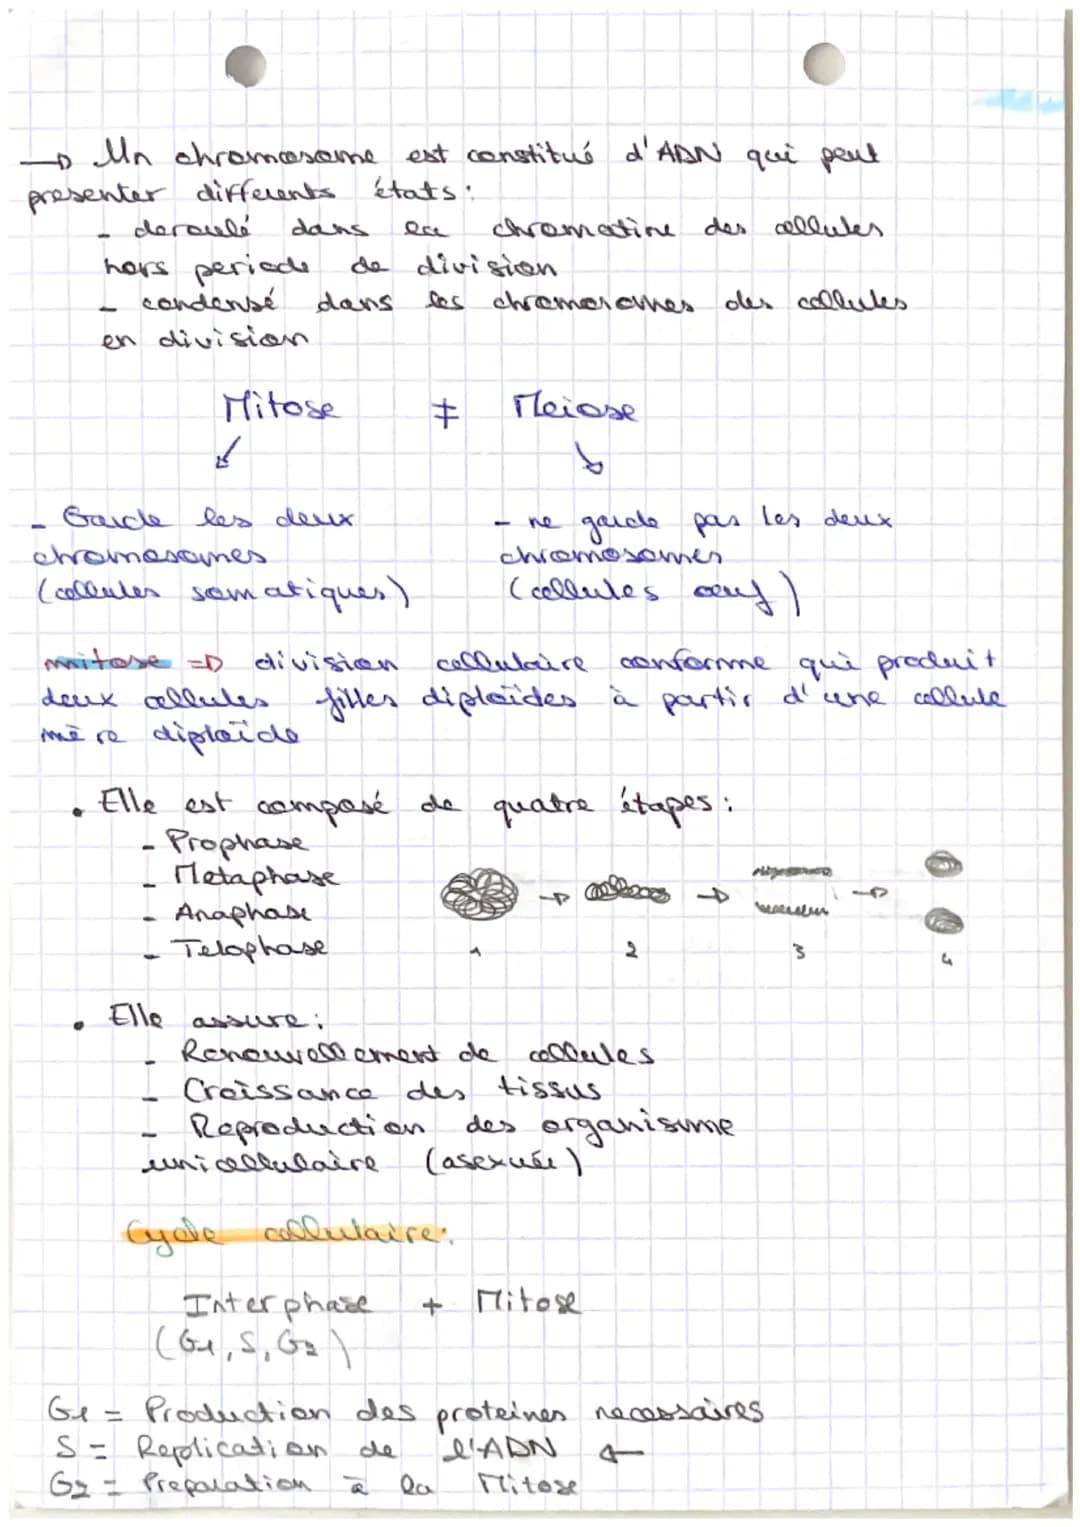 → Un chromosome est constitué d'ADN qui peut
presenter differents états :
- deroulé dans la chromatine des cellules
hors periode de division
- condensé dans les chromosomes des cellules
en division
Mitose ≠ Meiose
↙ ↘
- Garde les deux
chromosomes
(cellules somatiques)
- ne garde pas les deux
chromosomes
(cellules oeuf)
mitose => division cellulaire conforme qui produit
deux cellules filles diploïdes à partir d'une cellule
mère diploïde
• Elle est composé de quatre étapes :
- Prophase
- Metaphase
- Anaphase
- Telophase
→ → →
1 2 3 4
• Elle assure :
- Renouvellement de cellules
- Croissance des tissus
- Reproduction des organisme
unicellulaire (asexuée)
Cycle cellulaire :
Interphase + Mitose
(G1, S, G2)
G1 = Production des proteines necessaires
S = Replication de l'ADN ←
G2 = Preparation à la Mitose